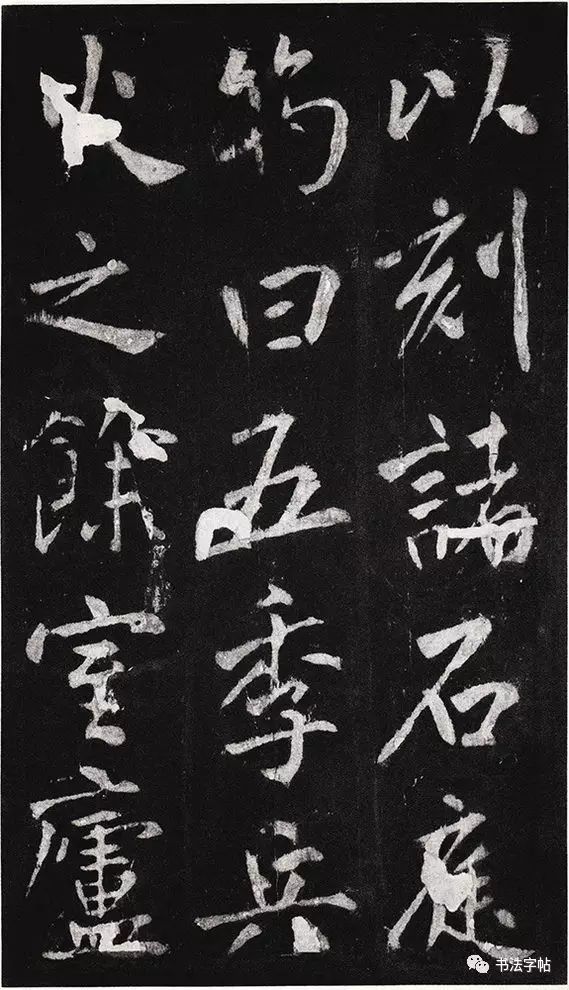 以刻諸石庭
筠曰五季兵
火之餘室廬
书法字帖